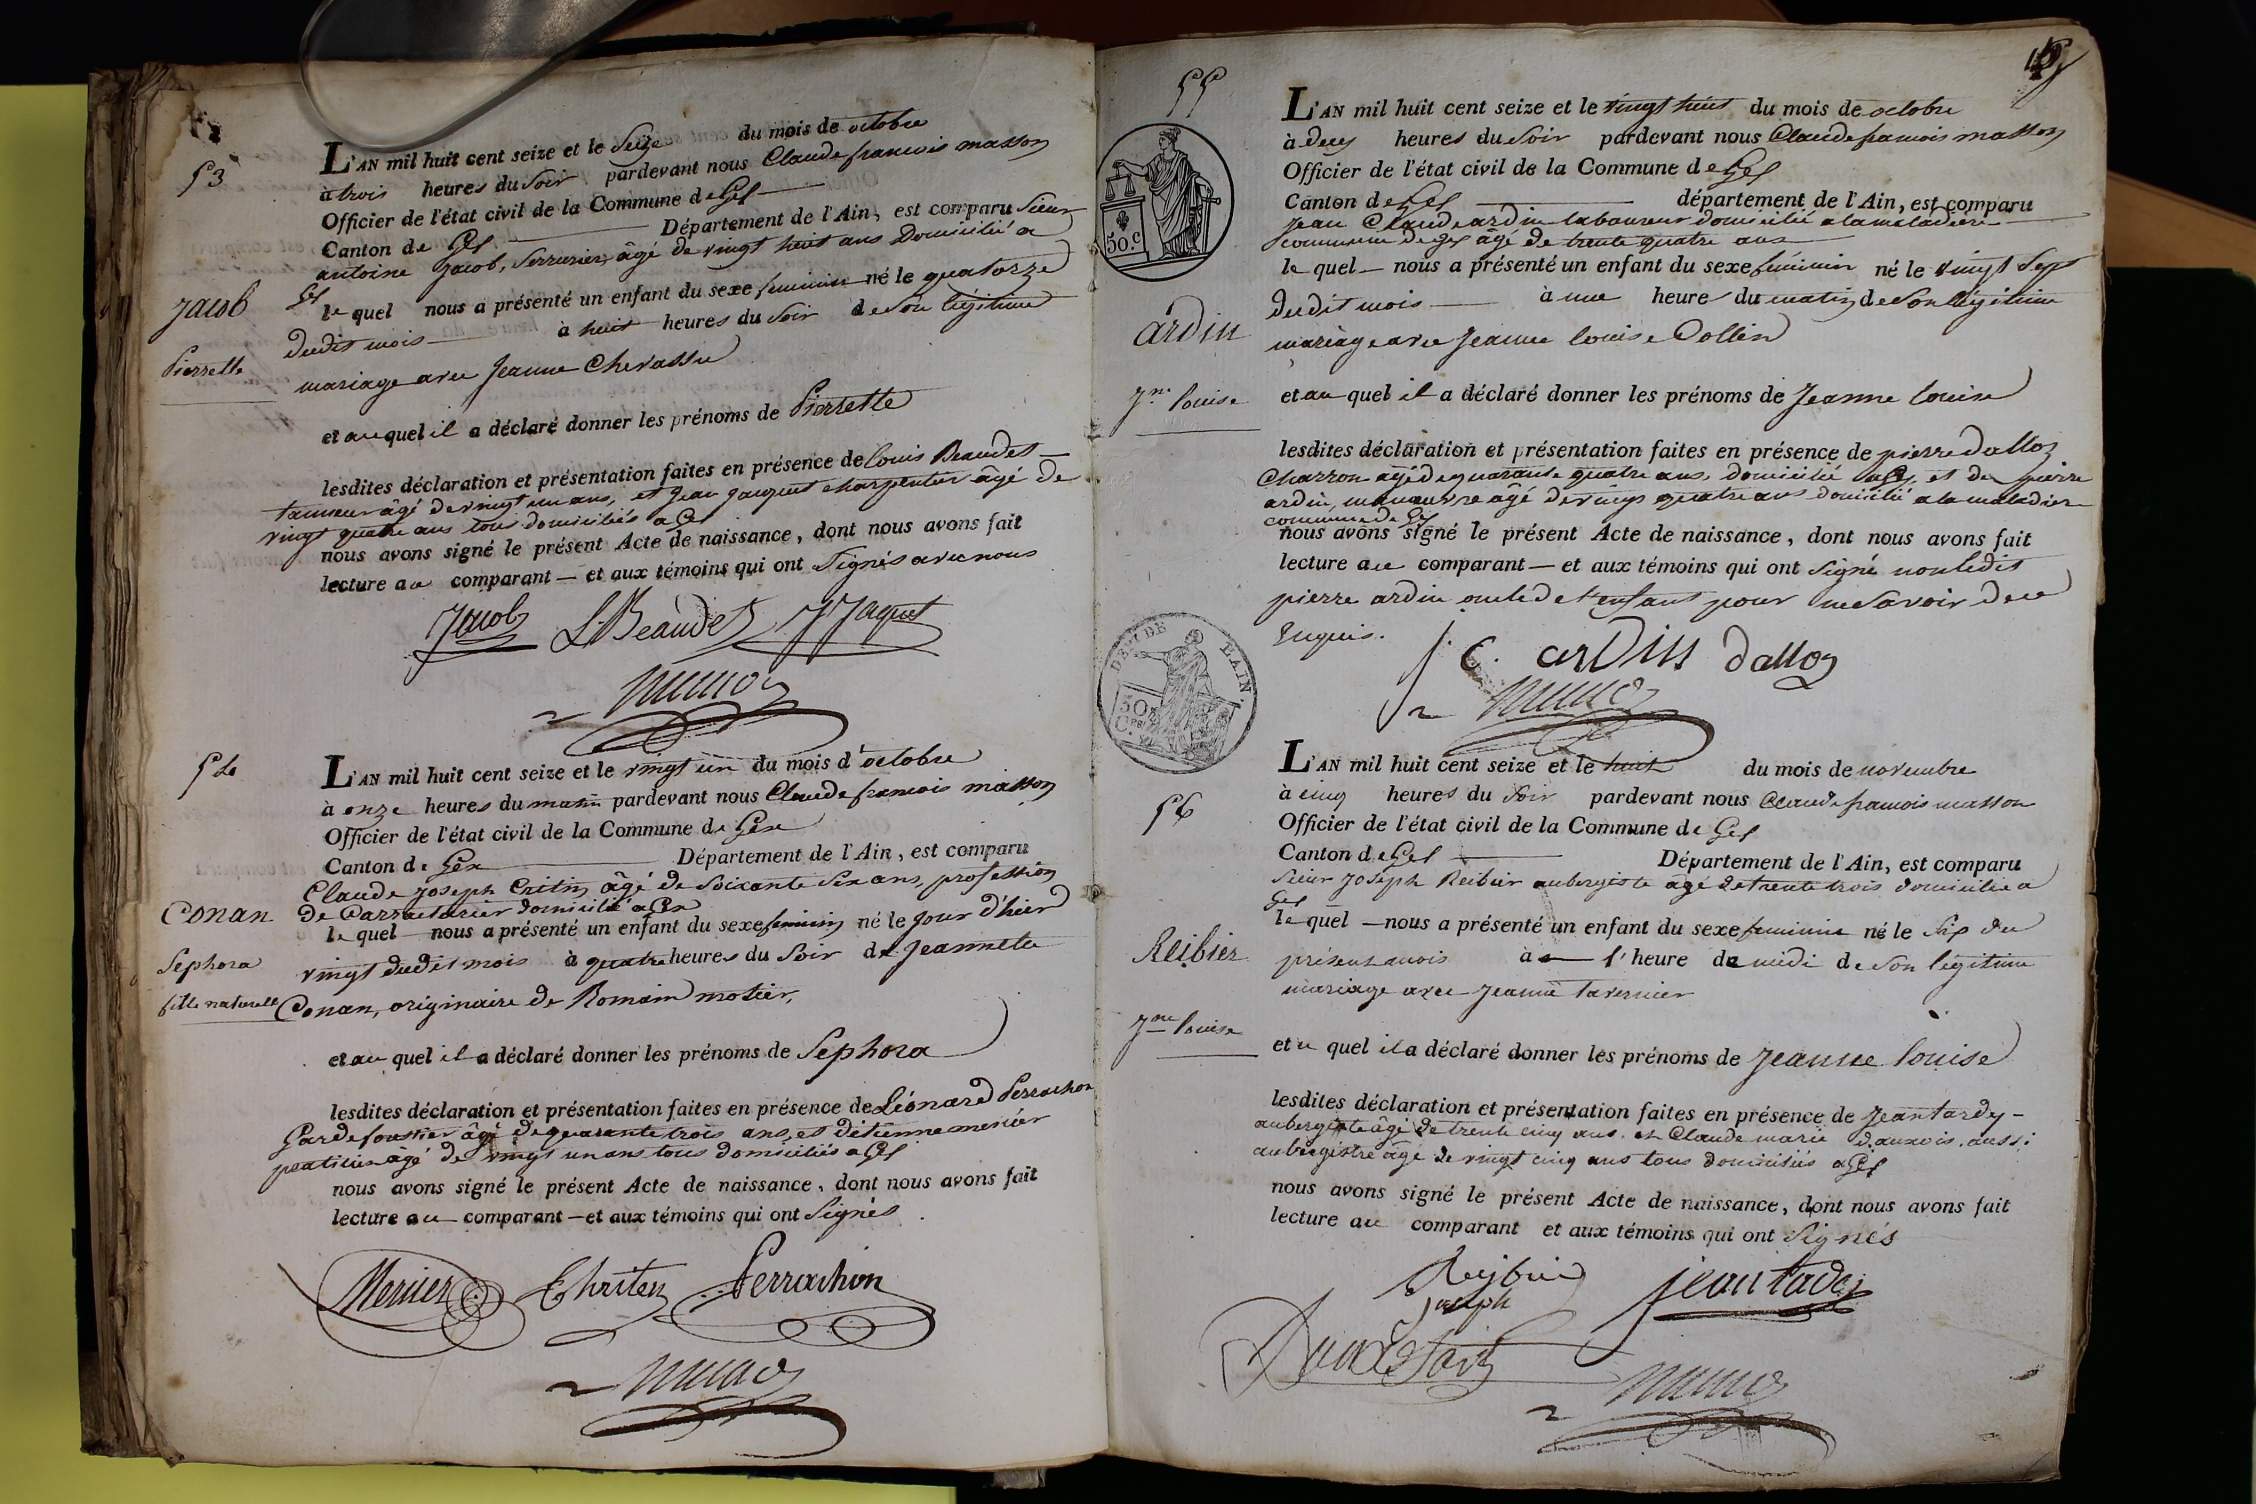 53
L'AN mil huit cent seize et le Seize du mois de octobre
à trois heures du Soir pardevant nous Claude francois masson
Officier de l'état civil de la Commune de Gex
Canton de Gex Département de l'Ain, est comparu Sieur
antoine Jacob, Serrurier, âgé de vingt huit ans Domicilié a
Gex
le quel nous a présenté un enfant du sexe feminin né le quatorze
dudit mois à huit heures du Soir de Son légitime
mariage avec Jeanne Chevassu
Jacob
Pierrette
et au quel il a déclaré donner les prénoms de Pierrette
lesdites déclaration et présentation faites en présence de louis Beaudet
tanneur âgé de vingt un ans, et Jean Jacquet charpentier âgé de
vingt quatre ans tous domiciliés a Gex
nous avons signé le présent Acte de naissance, dont nous avons fait
lecture au comparant — et aux témoins qui ont Signés avec nous
Jacob L. Beaudet J Jaquet
54
L'AN mil huit cent seize et le vingt un du mois d'octobre
à onze heures du matin pardevant nous Claude francois masson
Officier de l'état civil de la Commune de Gex
Canton de Gex Département de l'Ain, est comparu
Claude Joseph Critin âgé de Soixante Six ans, profession
de domicilié a Gex
le quel nous a présenté un enfant du sexe feminin né le Jour d'hier
vingt dudit mois à quatre heures du Soir de Jeannete
Conan, originaire de Romain motier,
Conan
Sephora
fille naturelle
et au quel il a déclaré donner les prénoms de Sephora
lesdites déclaration et présentation faites en présence de Léonard Perrachon
Garde foustier âgé de quarante trois ans, et détienne mercier
praticien agé de vingt un ans tous domiciliés a Gex
nous avons signé le présent Acte de naissance, dont nous avons fait
lecture au comparant — et aux témoins qui ont Signés
Mercier Chriten Perrachon
55
L'AN mil huit cent seize et le vingt huit du mois de octobre
à deux heures du Soir pardevant nous Claude francois masson
Officier de l'état civil de la Commune de Gex
Canton de Gex département de l'Ain, est comparu
Jean Claude ardin laboureur domicilié a la maladière
commune de gex âgé de trente quatre ans
le quel — nous a présenté un enfant du sexe feminin né le vingt Sept
dudit mois à une heure du matin de Son légitime
mariage avec Jeanne louise Dollin
50.C
ardin
Jne louise
et au quel il a déclaré donner les prénoms de Jeanne louise
lesdites déclaration et présentation faites en présence de pierre dalloz
Charron agé de quarante quatre ans domicilié a Gex et de pierre
ardin, manœuvre âgé de vingt quatre ans domicilié a la maladiere
commune de Gex
nous avons signé le présent Acte de naissance, dont nous avons fait
lecture au comparant — et aux témoins qui ont Signé non ledit
pierre ardin oncle de l'enfant pour ne Savoir de ce
Enquis.
J. C. arDin dalloz
DEP. DE L'AIN.
56
L'AN mil huit cent seize et le huit du mois de novembre
à cinq heures du Soir pardevant nous Claude francois masson
Officier de l'état civil de la Commune de Gex
Canton de Gex Département de l'Ain, est comparu
Sieur Joseph Reibier aubergiste agé de trente trois domicilié a
Gex
le quel — nous a présenté un enfant du sexe feminin né le Six du
présent mois à l'heure de midi de Son légitime
mariage avec Jeanne tavernier
Reibier
Jne louise
et au quel il a déclaré donner les prénoms de Jeanne louise
lesdites déclaration et présentation faites en présence de Jean tardy -
aubergiste agé de trente cinq ans et Claude marie dauxois. aussi
aubergistre âgé de vingt cinq ans tous domiciliés a Gex
nous avons signé le présent Acte de naissance, dont nous avons fait
lecture au comparant et aux témoins qui ont Signés
Reybier jean tardy
Joseph